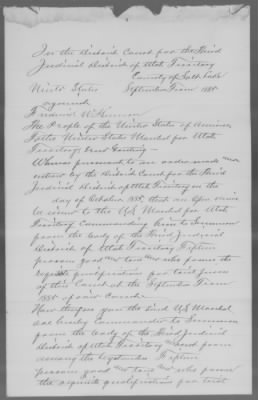 In the District Court for the Third
Judicial District of Utah Territory
County of Salt Lake
United States September Term 1885
against
Frederick W.
The People of the United States of America
To the United States Marshal for Utah
Territory, Greeting
Whereas pursuant to an order made and
entered by the District Court for the Third
Judicial District of Utah Territory on the
day of October 1885 that an Open venire
be issued to the U.S. Marshal for Utah
Territory Commanding him to Summon
from the body of the Third Judicial
District of Utah Territory Fifteen
persons good and true men who possess the
requisite qualifications for
of this Court at the September Term
1885 of said Court
Now therefore you the said U.S. Marshal
are hereby Commanded to Summon
from the body of the Third Judicial
District of Utah Territory and from
among the Fifteen
persons good and true men who possess
the requisite qualifications for